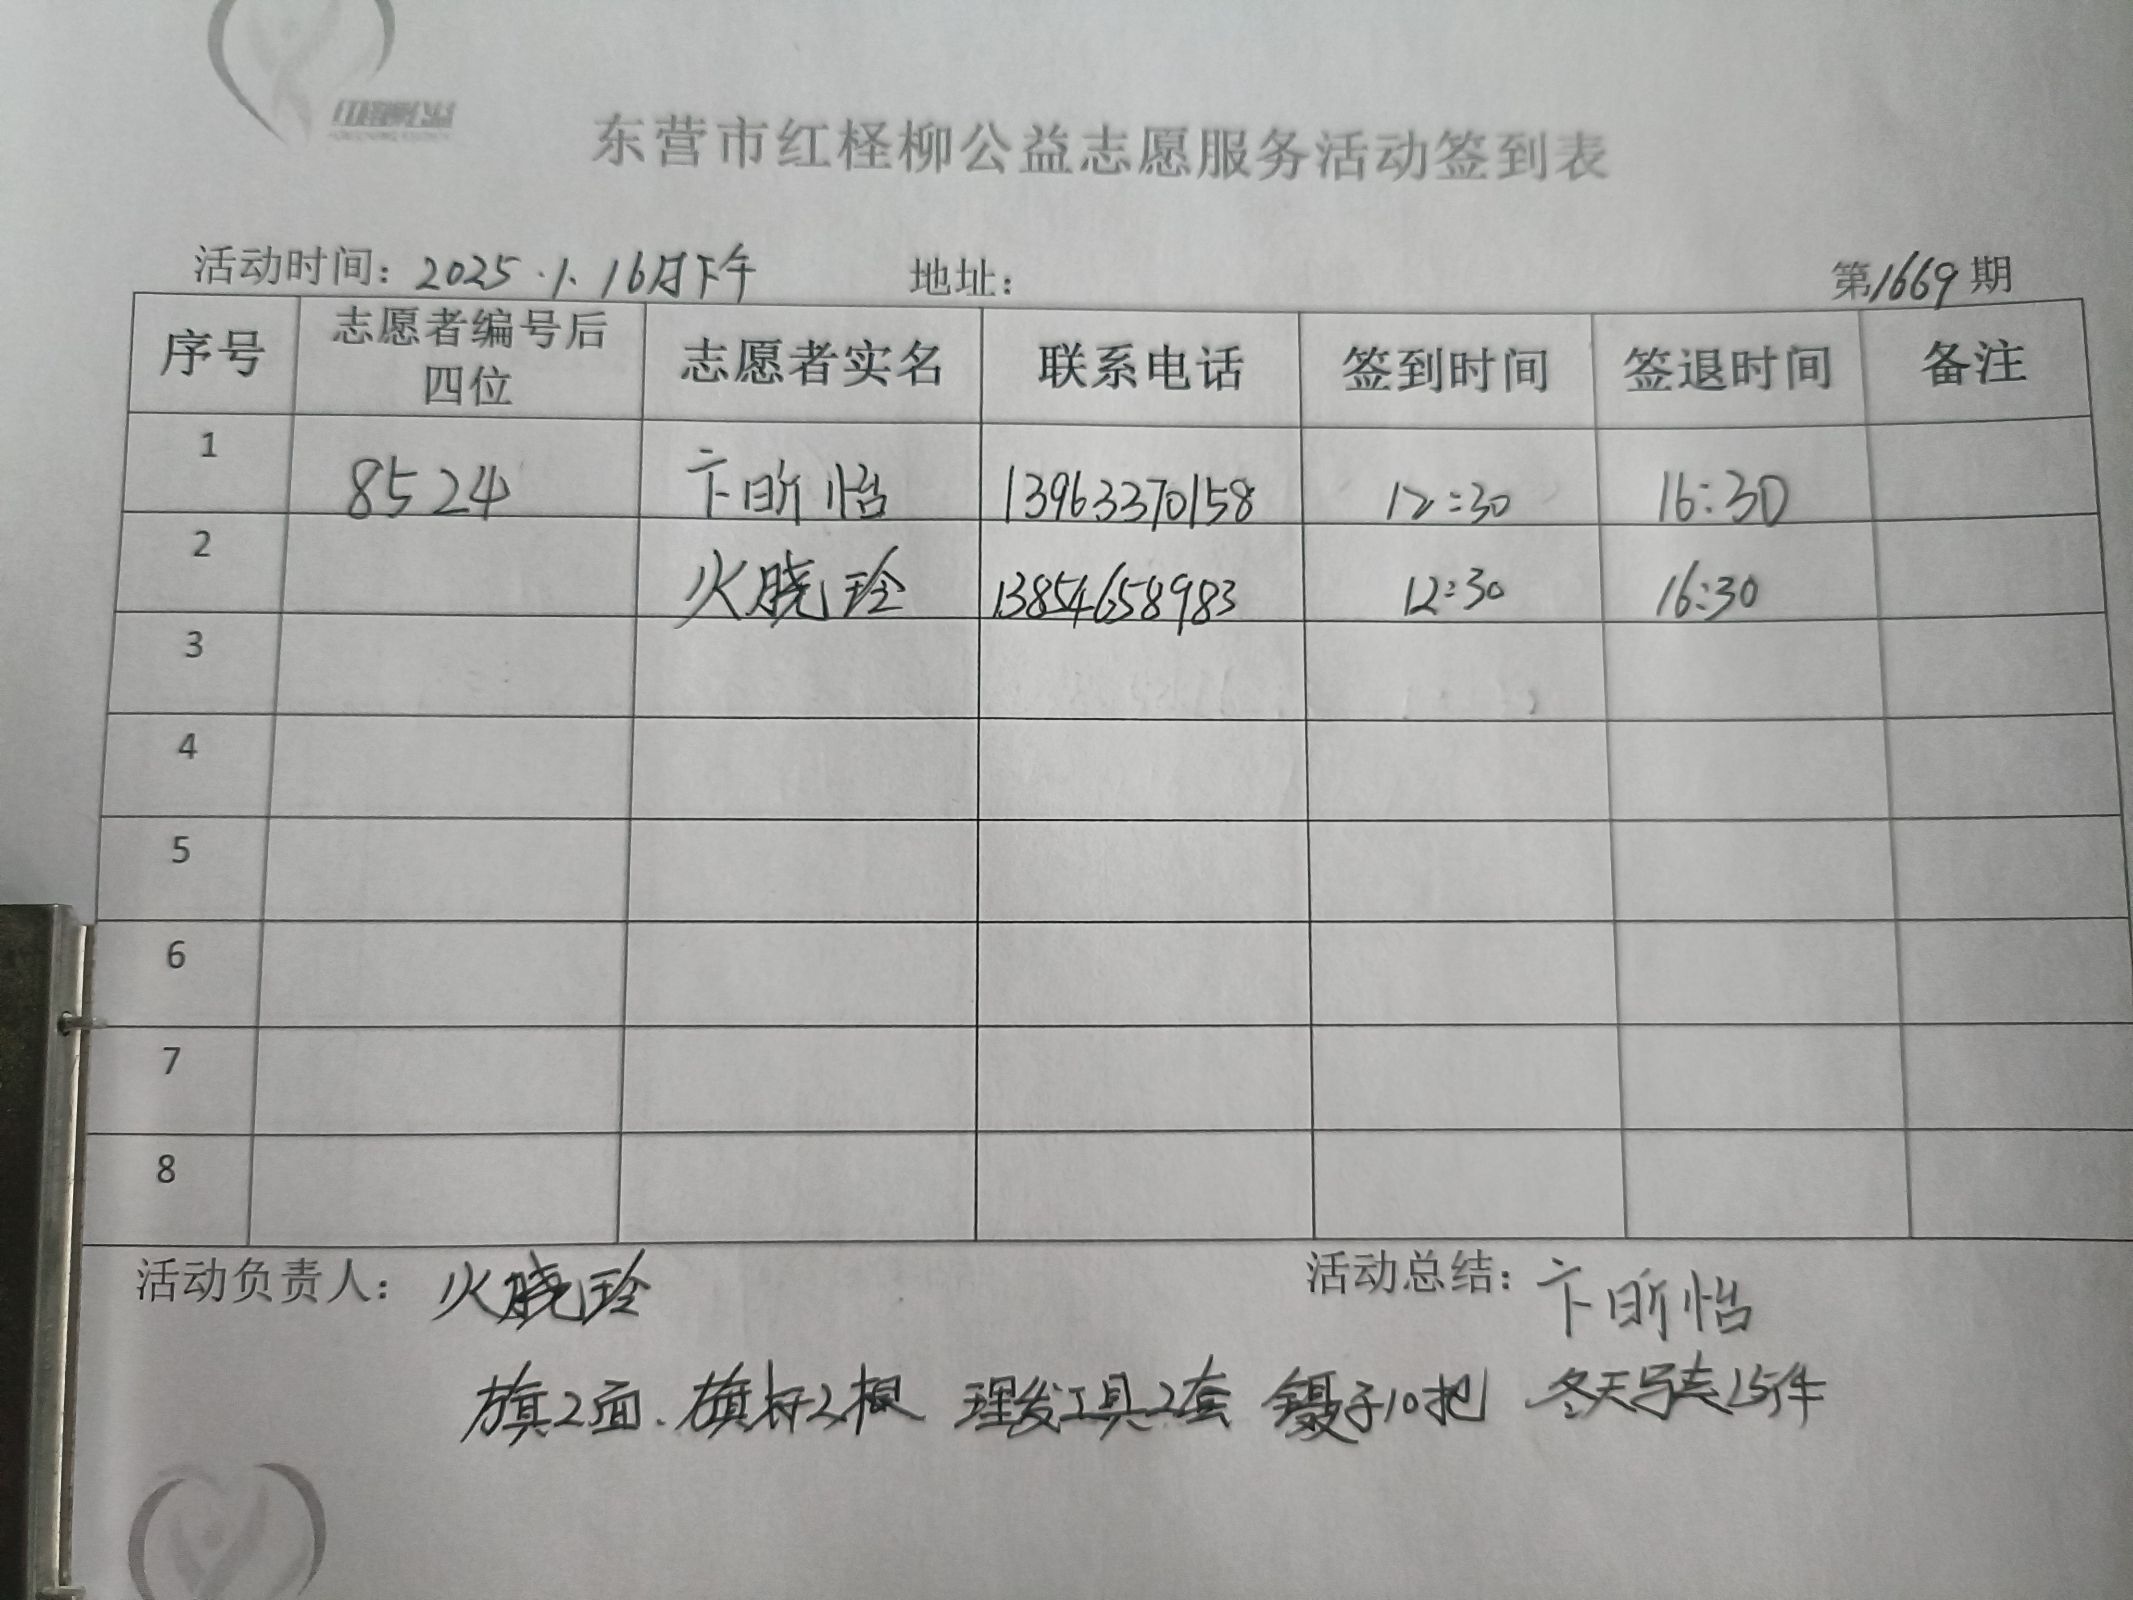 红柽柳公益
东营市红柽柳公益志愿服务活动签到表
活动时间：2025.1.16日下午 地址： 第1669期
序号 志愿者编号后四位 志愿者实名 联系电话 签到时间 签退时间 备注
1 8524 卞昕怡 13963370158 12:30 16:30
2 火晓玲 13854658983 12:30 16:30
3
4
5
6
7
8
活动负责人：火晓玲 活动总结：卞昕怡
旗2面、旗杆2根 理发工具2套 镊子10把 冬天马夹15件